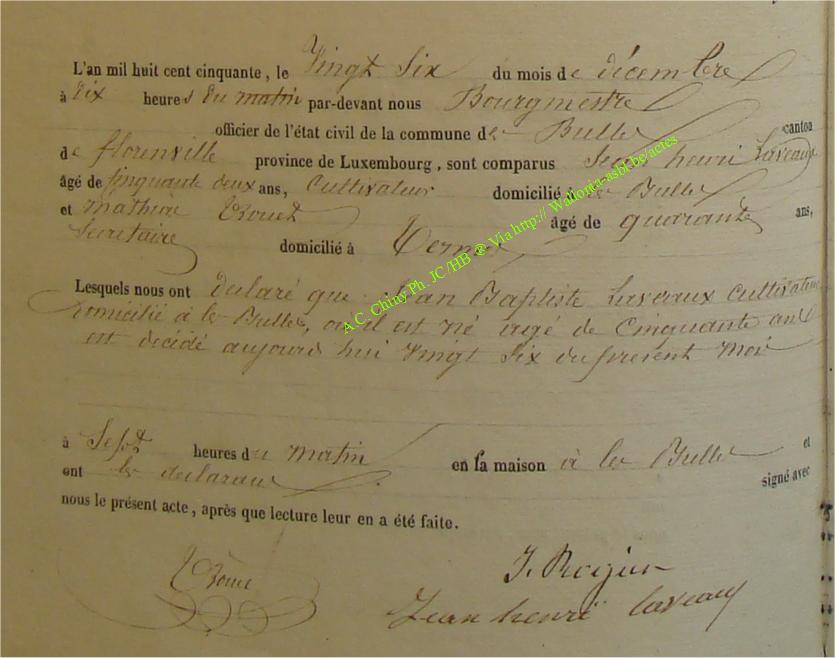 L'an mil huit cent cinquante, le Vingt Six du mois de décembre
à dix heures du matin par-devant nous Bourgmestre
officier de l'état civil de la commune de Bulle canton
de florenville province de Luxembourg, sont comparus Jean henri Laveaux
âgé de Cinquante deux ans, Cultivateur domicilié à Bulle
et Mathieu âgé de quarante ans,
Secretaire domicilié à
Lesquels nous ont declaré que Jean Baptiste Laveaux Cultivateur
domicilié à les Bulles, ou il est né agé de Cinquante ans
est decidé aujourd hui Vingt Six du présent Mois
à Sept heures du matin en sa maison à les Bulles et
ont les declarans signé avec
nous le présent acte, après que lecture leur en a été faite.
J. Rogier
Jean henri laveaux
A.C. Chiny Ph. JC/HB @ Via http:// Wallonia-asbl.be/actes